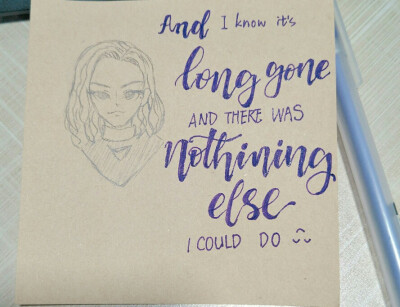 And I know it's
long gone
AND THERE WAS
Nothining
else
I COULD DO